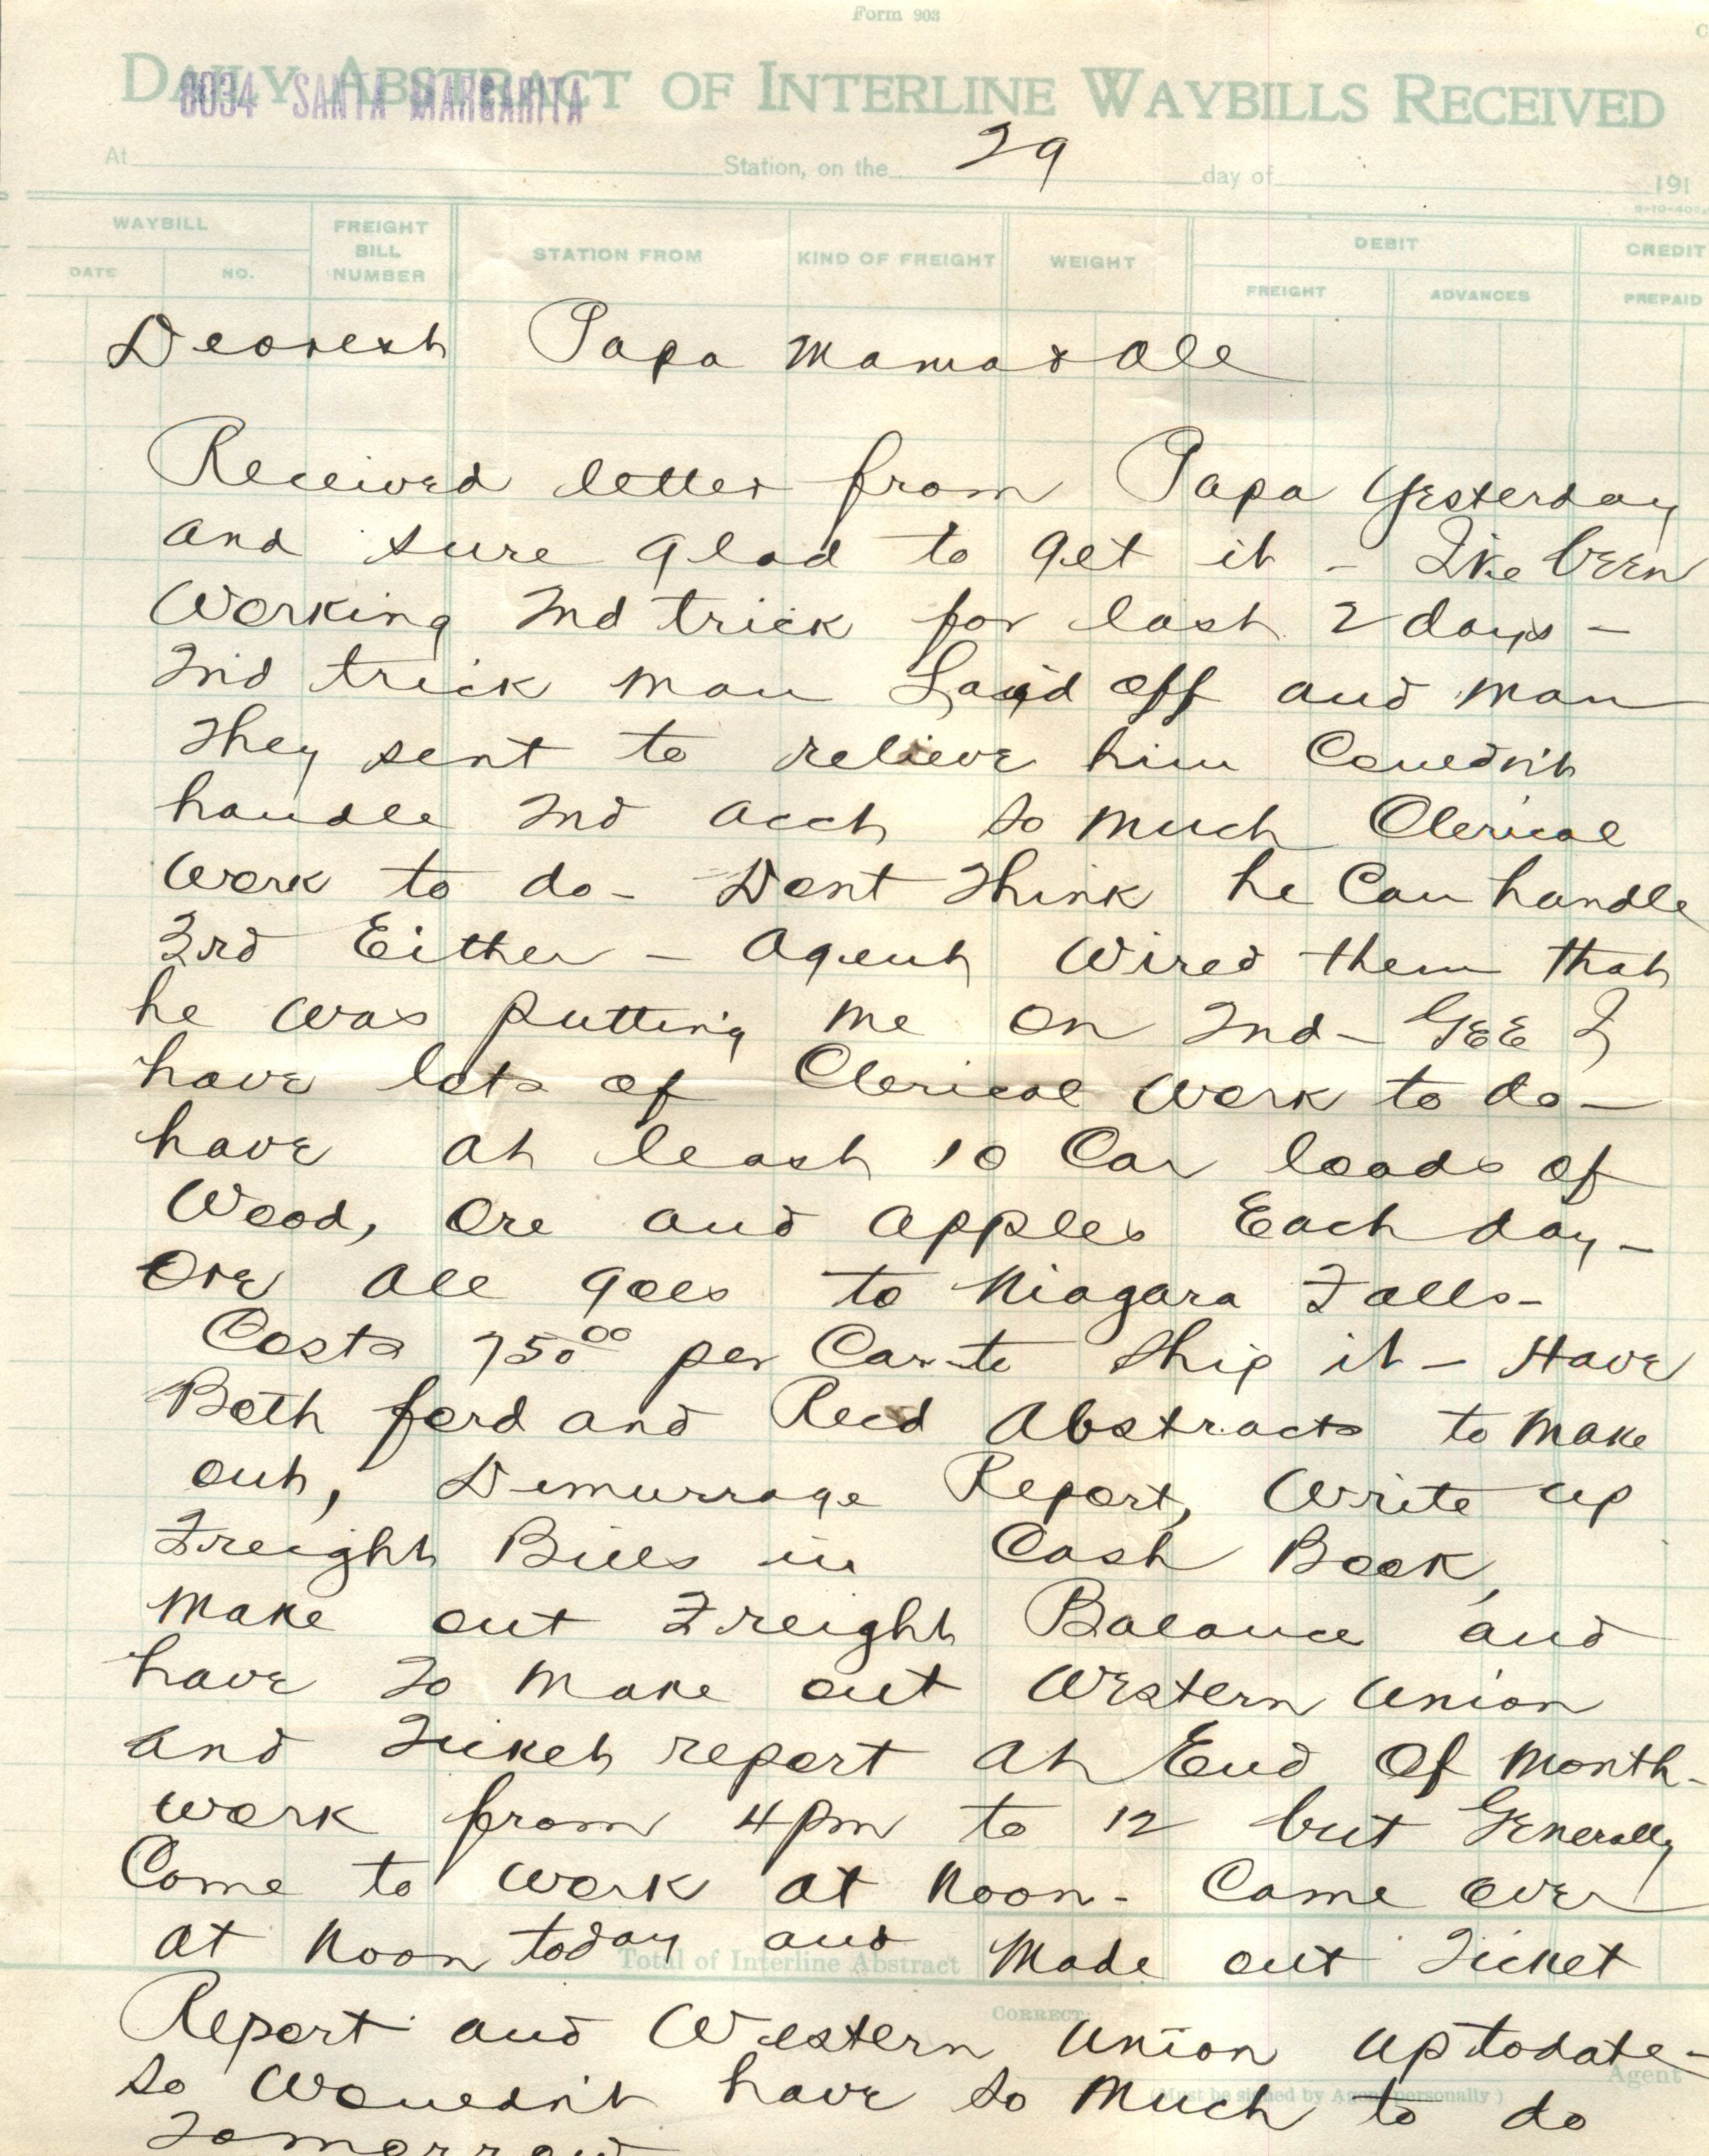 Form 903
DAILY ABSTRACT OF INTERLINE WAYBILLS RECEIVED
8034 SANTA MARGARITA
At Station, on the 29 day of 191
WAYBILL
FREIGHT BILL NUMBER
STATION FROM
KIND OF FREIGHT
WEIGHT
DEBIT
CREDIT
DATE
NO.
FREIGHT
ADVANCES
PREPAID
Dearest Papa Mama & all
Received letter from Papa yesterday
and sure glad to get it - I've been
Working 2nd trick for last 2 days -
2nd trick man Laid off and man
They sent to relieve him Couldn't
handle 2nd acct so much Clerical
work to do - Dont think he Can handle
3rd Either - Agent Wired them that
he was putting me on 2nd - GEE I
have lots of Clerical work to do -
have at least 10 Car loads of
Wood, Ore and apples Each day -
Ore all goes to Niagara Falls -
Costs 750.00 per Car to Ship it - Have
Both ford and Recd Abstracts to make
out, Demurrage Report, Write up
Freight Bills in Cash Book,
make out Freight Balance and
have to make out Western Union
and Ticket report at End Of Month -
work from 4 pm to 12 but Generally
Come to work at Noon - Came over
at Noon today and Made out Ticket
Total of Interline Abstract
CORRECT:
Report and Western Union up todate -
Agent
(Must be signed by Agent personally)
so wouldn't have so much to do
Tomorrow